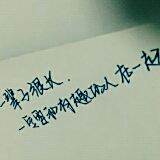 一辈子很长
一定要和有趣的人在一起